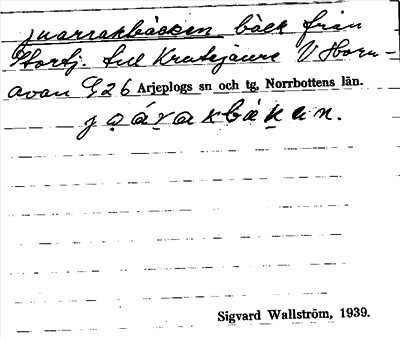 juarrakbäcken bäck från
Stortj. till Krutsjaure V Horn-
avan G26 Arjeplogs sn och tg, Norrbottens län.
Sigvard Wallström, 1939.